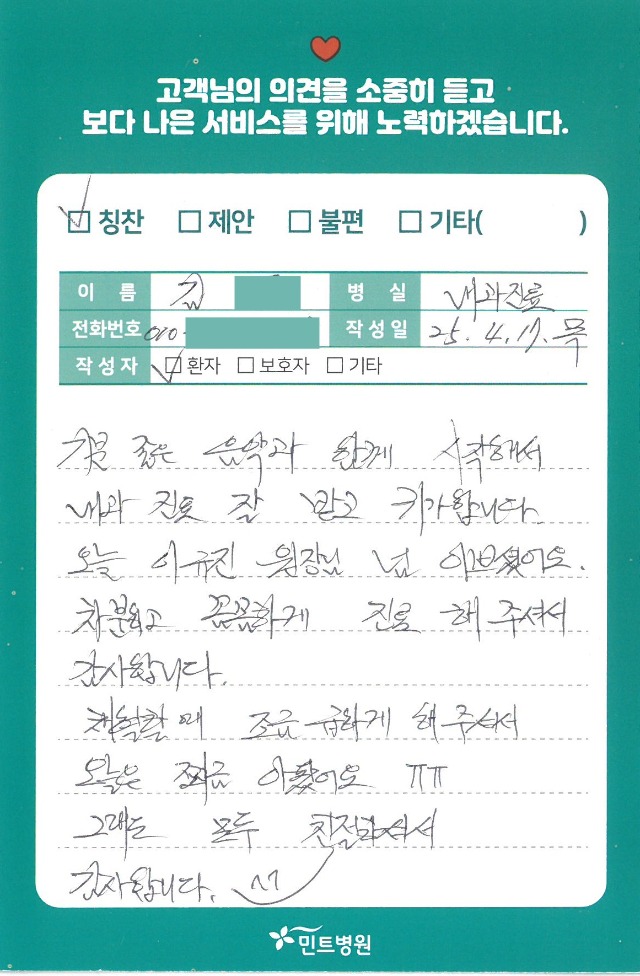 고객님의 의견을 소중히 듣고
보다 나은 서비스를 위해 노력하겠습니다.
칭찬 제안 불편 기타( )
이 름 김 병 실 내과진료
전화번호 010- 작성일 25. 4. 17. 목
작성자 환자 보호자 기타
기분 좋은 음악과 함께 시작해서
내과 진료 잘 받고 귀가합니다.
오늘 이규진 원장님 넘 이쁘셨어요.
차분하고 꼼꼼하게 진료 해 주셔서
감사합니다.
채혈할 때 조금 급하게 해 주셔서
오늘은 쪼금 아팠어요 ㅠㅠ
그래도 모두 친절하셔서
감사합니다.
민트병원